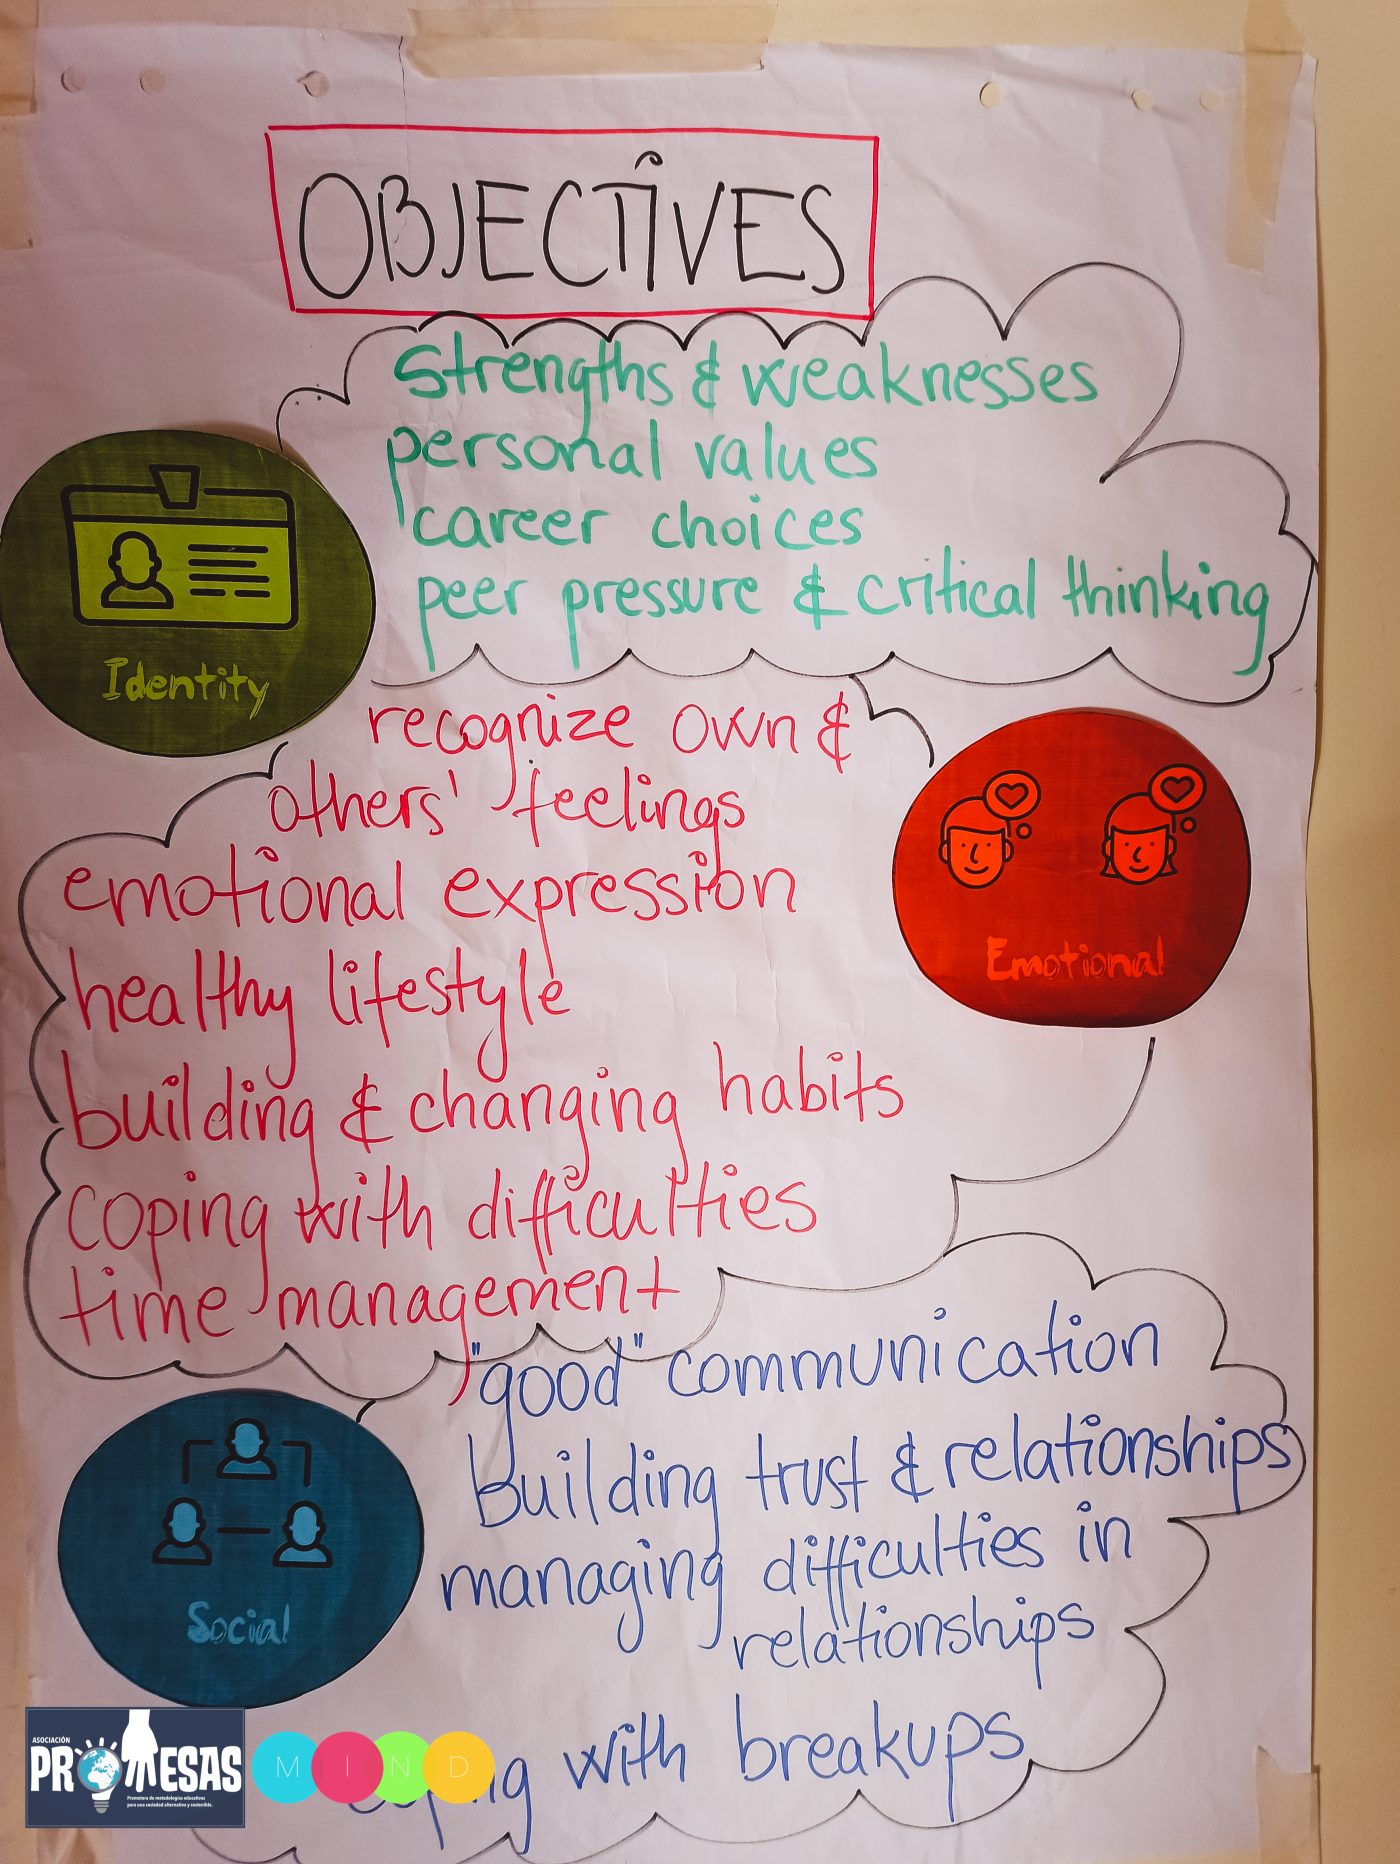 OBJECTIVES
Strengths & weaknesses
personal values
career choices
peer pressure & critical thinking
Identity
recognize own &
others' feelings
emotional expression
healthy lifestyle
building & changing habits
coping with difficulties
time management
Emotional
"good" communication
building trust & relationships
managing difficulties in
relationships
with breakups
Social
ASOCIACIÓN
PROMESAS
Promotora de metodologías educativas
para una sociedad alternativa y sostenible.
MIND